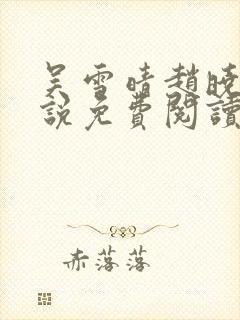 吳雪晴趙曉
說免費閱讀
赤落落